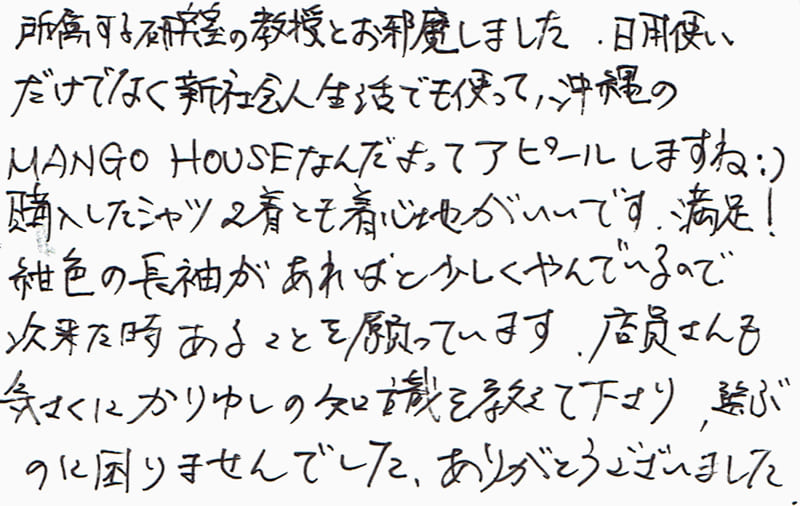 所属する研究室の教授とお邪魔しました。日用使い
だけでなく新社会人生活でも使って、沖縄の
MANGO HOUSEなんだよってアピールしますね:)
購入したシャツ2着とも着心地がいいです。満足!
紺色の長袖があればと少しくやんでいるので
次来た時あることを願っています。店員さんも
気さくにかりゆしの知識を教えて下さり、選ぶ
のに困りませんでした、ありがとうございました.